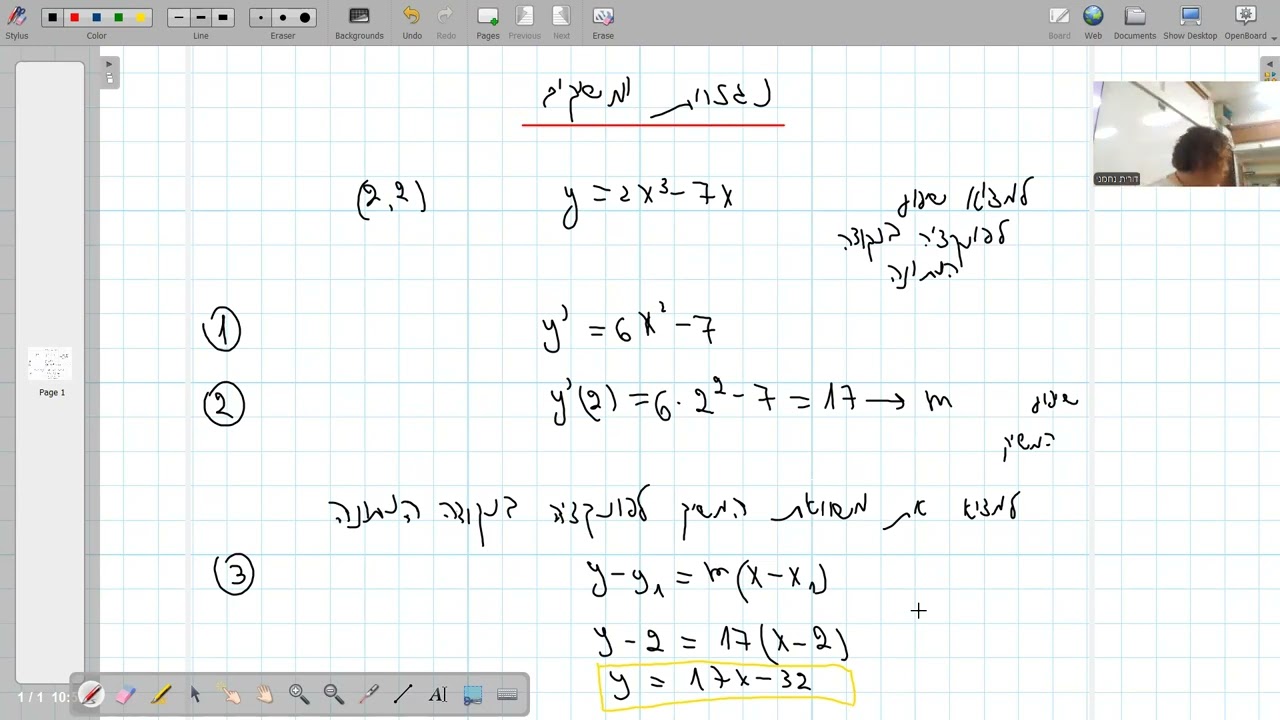 Stylus Color Line Eraser Backgrounds Undo Redo Pages Previous Next Erase Board Web Documents Show Desktop OpenBoard
נגזרות ומשיקים
(2,2) y = 2x³ - 7x למצוא שיפוע
לפונקציה בנקודה
הנתונה
① y' = 6x² - 7
② y'(2) = 6·2² - 7 = 17 → m שיפוע
המשיק
למצוא את משוואת המשיק לפונקציה בנקודה הנתונה
③ y - y₁ = m(x - x₁)
y - 2 = 17(x - 2)
y = 17x - 32
דורית נחמני
Page 1
1 / 1